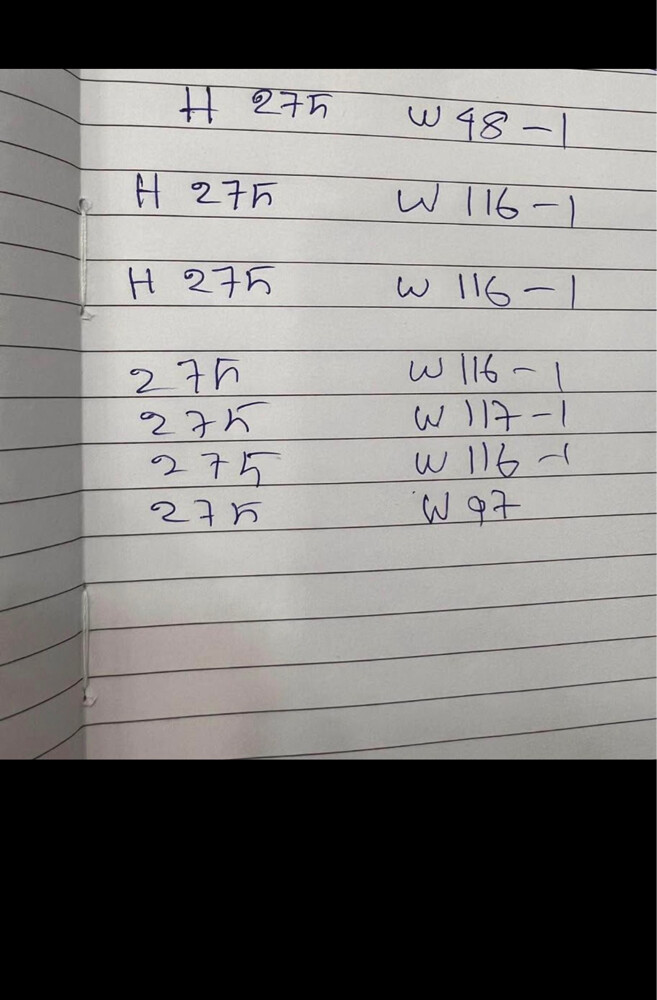 H 275 W 48-1
H 275 W 116-1
H 275 W 116-1
275 W 116-1
275 W 117-1
275 W 116-1
275 W 97